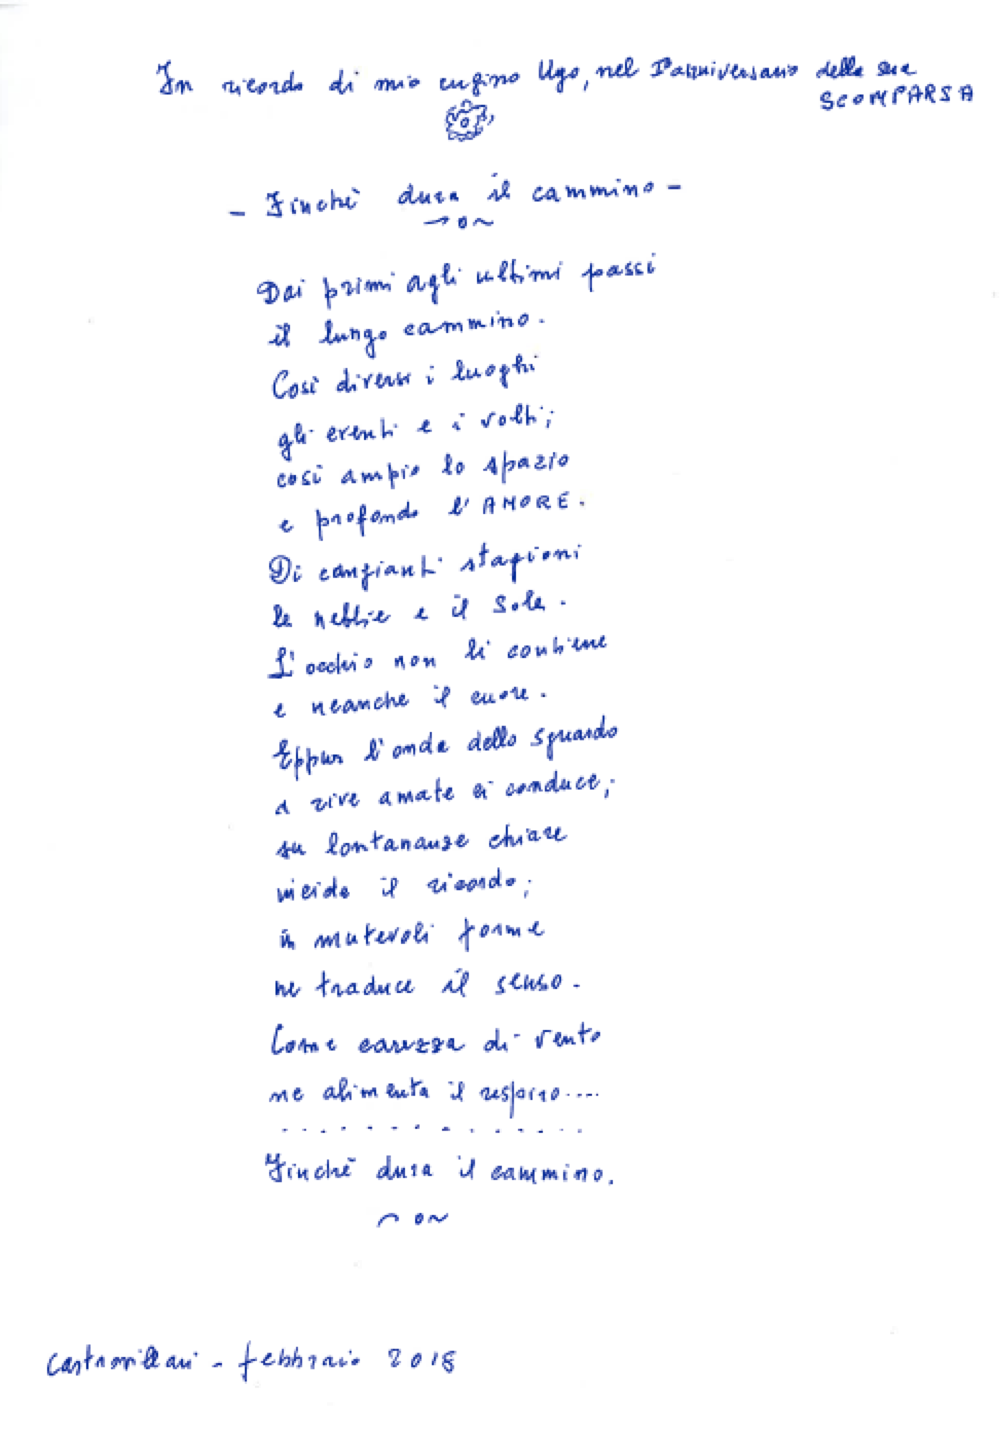 In ricordo di mio cugino Ugo, nel I anniversario della sua
SCOMPARSA
- Finchè dura il cammino -
Dai primi agli ultimi passi
il lungo cammino.
Così diversi i luoghi
gli eventi e i volti;
così ampio lo spazio
e profondo l'AMORE.
Di cangianti stagioni
le nebbie e il sole.
L'occhio non li contiene
e neanche il cuore.
Eppur l'onda dello sguardo
a rive amate ci conduce;
su lontananze chiare
incide il ricordo;
in mutevoli forme
ne traduce il senso.
Come carezza di vento
ne alimenta il respiro....
. . . . . . . . . . . . . .
Finchè dura il cammino.
Castrovillari - febbraio 2018